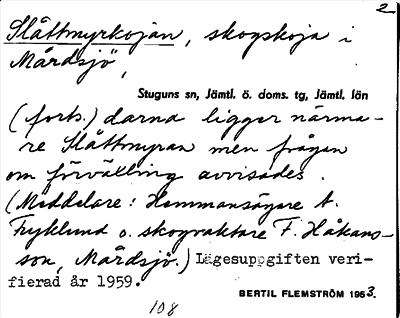 2
Slåttmyrkojan, skogskoja i
Mårdsjö,
Stuguns sn, Jämtl. ö. doms. tg, Jämtl. län
(forts.) darna ligger närma-
re Slåttmyran men frågan
om förvällning avvisades.
(Meddelare: Hemmansägare A.
Fryklund o. skogvaktare F. Håkans-
son, Mårdsjö.) Lägesuppgiften veri-
fierad år 1959.
BERTIL FLEMSTRÖM 1963.
108